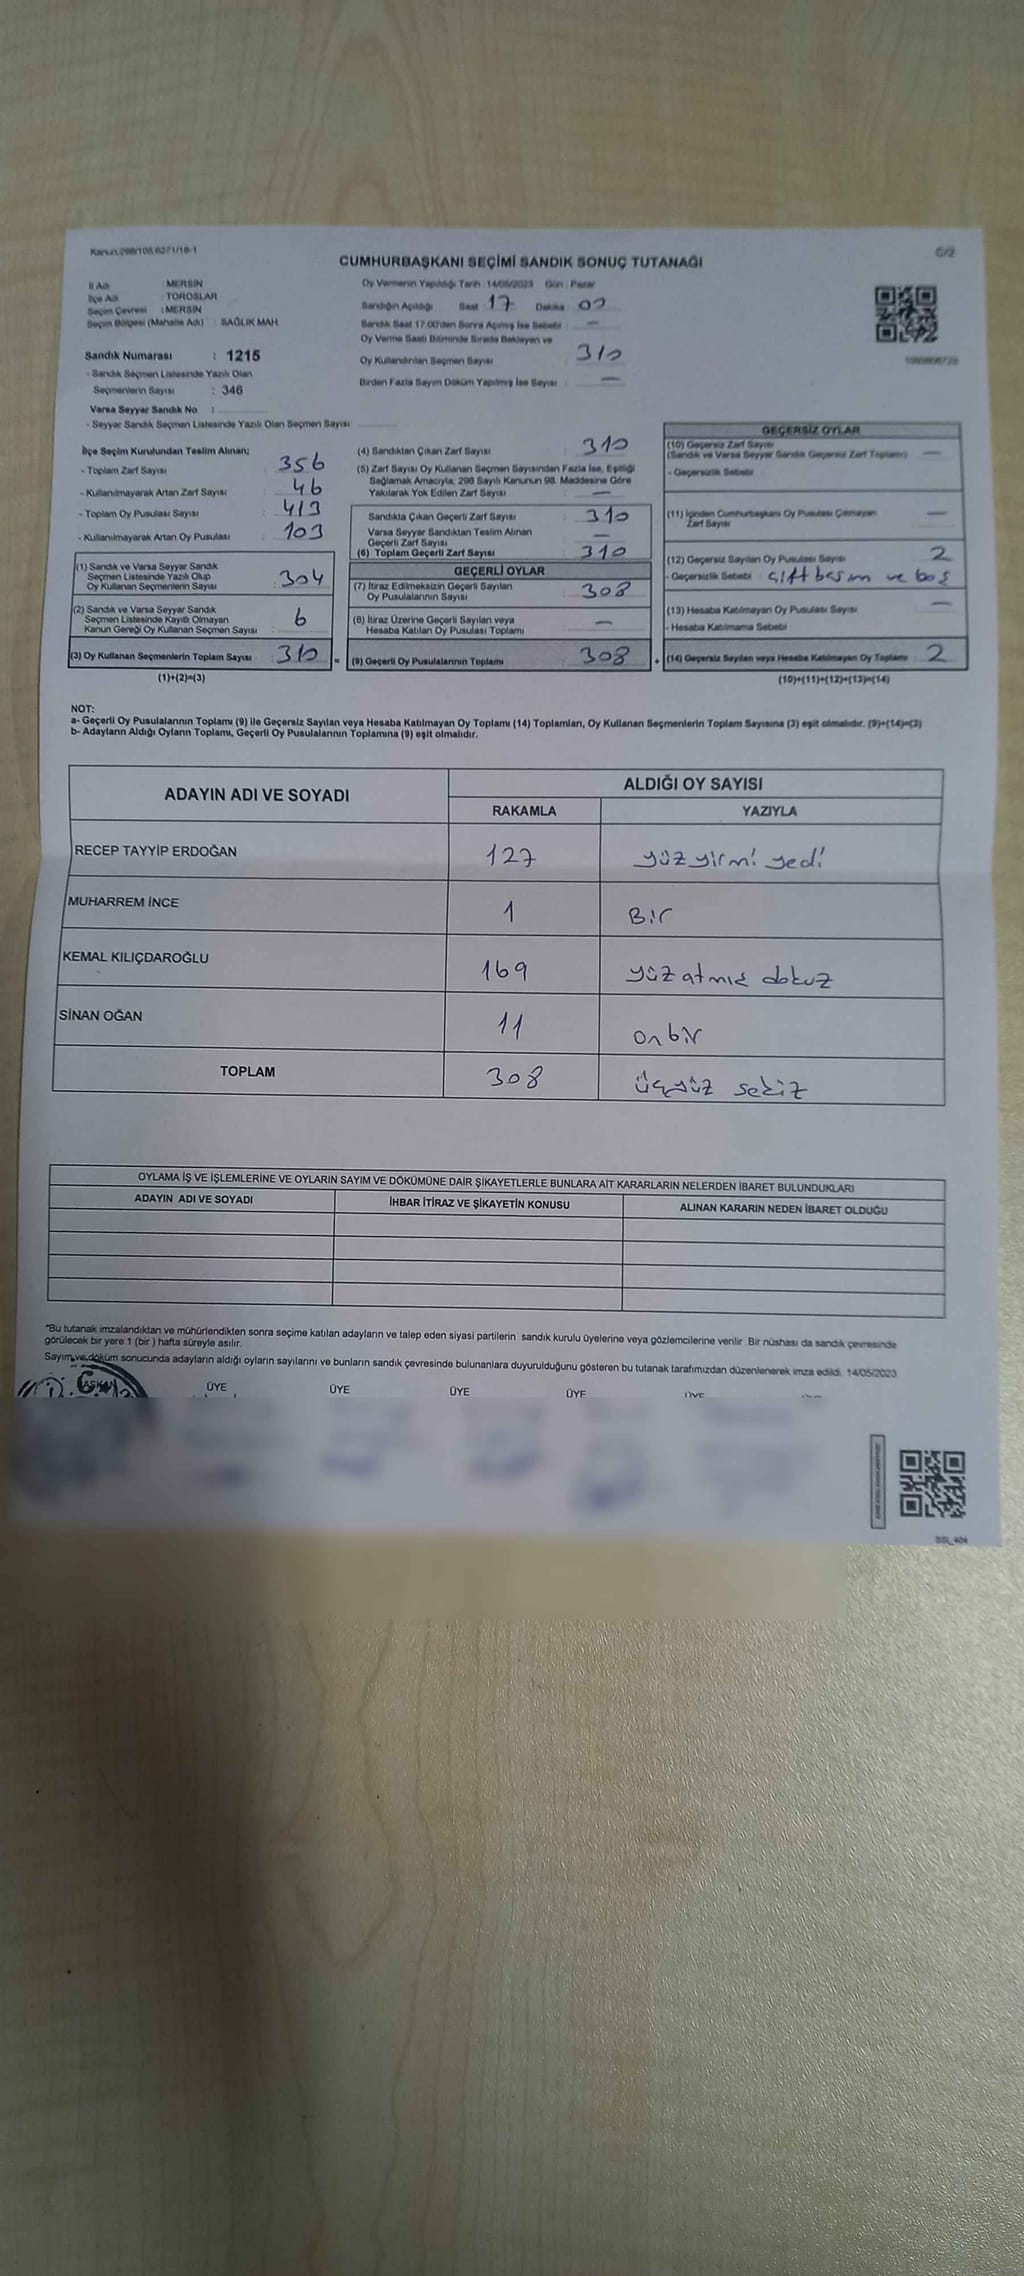 Kanun:298/105,6271/18-1
CUMHURBAŞKANI SEÇİMİ SANDIK SONUÇ TUTANAĞI
İl Adı : MERSİN
İlçe Adı : TOROSLAR
Seçim Çevresi : MERSİN
Seçim Bölgesi (Mahalle Adı) : SAĞLIK MAH.
Sandık Numarası : 1215
- Sandık Seçmen Listesinde Yazılı Olan
Seçmenlerin Sayısı : 346
Varsa Seyyar Sandık No :
- Seyyar Sandık Seçmen Listesinde Yazılı Olan Seçmen Sayısı
Oy Vermenin Yapıldığı Tarih :14/05/2023 Gün : Pazar
Sandığın Açıldığı Saat : 17 Dakika :
Sandık Saat 17:00'den Sonra Açılmış İse Sebebi : —
Oy Verme Saati Bitiminde Sırada Bekleyen ve
Oy Kullandırılan Seçmen Sayısı : 310
Birden Fazla Sayım Döküm Yapılmış İse Sayısı : —
İlçe Seçim Kurulundan Teslim Alınan;
- Toplam Zarf Sayısı : 356
- Kullanılmayarak Artan Zarf Sayısı : 46
- Toplam Oy Pusulası Sayısı : 413
- Kullanılmayarak Artan Oy Pusulası : 103
(1) Sandık ve Varsa Seyyar Sandık
Seçmen Listesinde Yazılı Olup
Oy Kullanan Seçmenlerin Sayısı : 304
(2) Sandık ve Varsa Seyyar Sandık
Seçmen Listesinde Kayıtlı Olmayan
Kanun Gereği Oy Kullanan Seçmen Sayısı : 6
(3) Oy Kullanan Seçmenlerin Toplam Sayısı : 310 =
(1)+(2)=(3)
(4) Sandıktan Çıkan Zarf Sayısı : 310
(5) Zarf Sayısı Oy Kullanan Seçmen Sayısından Fazla İse, Eşitliği
Sağlamak Amacıyla, 298 Sayılı Kanunun 98. Maddesine Göre
Yakılarak Yok Edilen Zarf Sayısı : —
Sandıkta Çıkan Geçerli Zarf Sayısı : 310
Varsa Seyyar Sandıktan Teslim Alınan
Geçerli Zarf Sayısı : —
(6) Toplam Geçerli Zarf Sayısı : 310
GEÇERLİ OYLAR
(7) İtiraz Edilmeksizin Geçerli Sayılan
Oy Pusulalarının Sayısı : 308
(8) İtiraz Üzerine Geçerli Sayılan veya
Hesaba Katılan Oy Pusulası Toplamı : —
(9) Geçerli Oy Pusulalarının Toplamı : 308 +
GEÇERSİZ OYLAR
(10) Geçersiz Zarf Sayısı
(Sandık ve Varsa Seyyar Sandık Geçersiz Zarf Toplamı) : —
- Geçersizlik Sebebi :
(11) İçinden Cumhurbaşkanı Oy Pusulası Çıkmayan
Zarf Sayısı : —
(12) Geçersiz Sayılan Oy Pusulası Sayısı : 2
- Geçersizlik Sebebi : çift basım ve boş
(13) Hesaba Katılmayan Oy Pusulası Sayısı : —
- Hesaba Katılmama Sebebi :
(14) Geçersiz Sayılan veya Hesaba Katılmayan Oy Toplamı : 2
(10)+(11)+(12)+(13)=(14)
NOT:
a- Geçerli Oy Pusulalarının Toplamı (9) ile Geçersiz Sayılan veya Hesaba Katılmayan Oy Toplamı (14) Toplamları, Oy Kullanan Seçmenlerin Toplam Sayısına (3) eşit olmalıdır. (9)+(14)=(3)
b- Adayların Aldığı Oyların Toplamı, Geçerli Oy Pusulalarının Toplamına (9) eşit olmalıdır.
ADAYIN ADI VE SOYADI
ALDIĞI OY SAYISI
RAKAMLA YAZIYLA
RECEP TAYYİP ERDOĞAN 127 yüz yirmi yedi
MUHARREM İNCE 1 Bir
KEMAL KILIÇDAROĞLU 169 yüz atmış dokuz
SİNAN OĞAN 11 on bir
TOPLAM 308 üçyüz sekiz
OYLAMA İŞ VE İŞLEMLERİNE VE OYLARIN SAYIM VE DÖKÜMÜNE DAİR ŞİKAYETLERLE BUNLARA AİT KARARLARIN NELERDEN İBARET BULUNDUKLARI
ADAYIN ADI VE SOYADI İHBAR İTİRAZ VE ŞİKAYETİN KONUSU ALINAN KARARIN NEDEN İBARET OLDUĞU
*Bu tutanak imzalandıktan ve mühürlendikten sonra seçime katılan adayların ve talep eden siyasi partilerin sandık kurulu üyelerine veya gözlemcilerine verilir. Bir nüshası da sandık çevresinde
görülecek bir yere 1 (bir ) hafta süreyle asılır.
Sayım ve döküm sonucunda adayların aldığı oyların sayılarını ve bunların sandık çevresinde bulunanlara duyurulduğunu gösteren bu tutanak tarafımızdan düzenlenerek imza edildi. 14/05/2023
BAŞKAN ÜYE ÜYE ÜYE ÜYE ÜYE